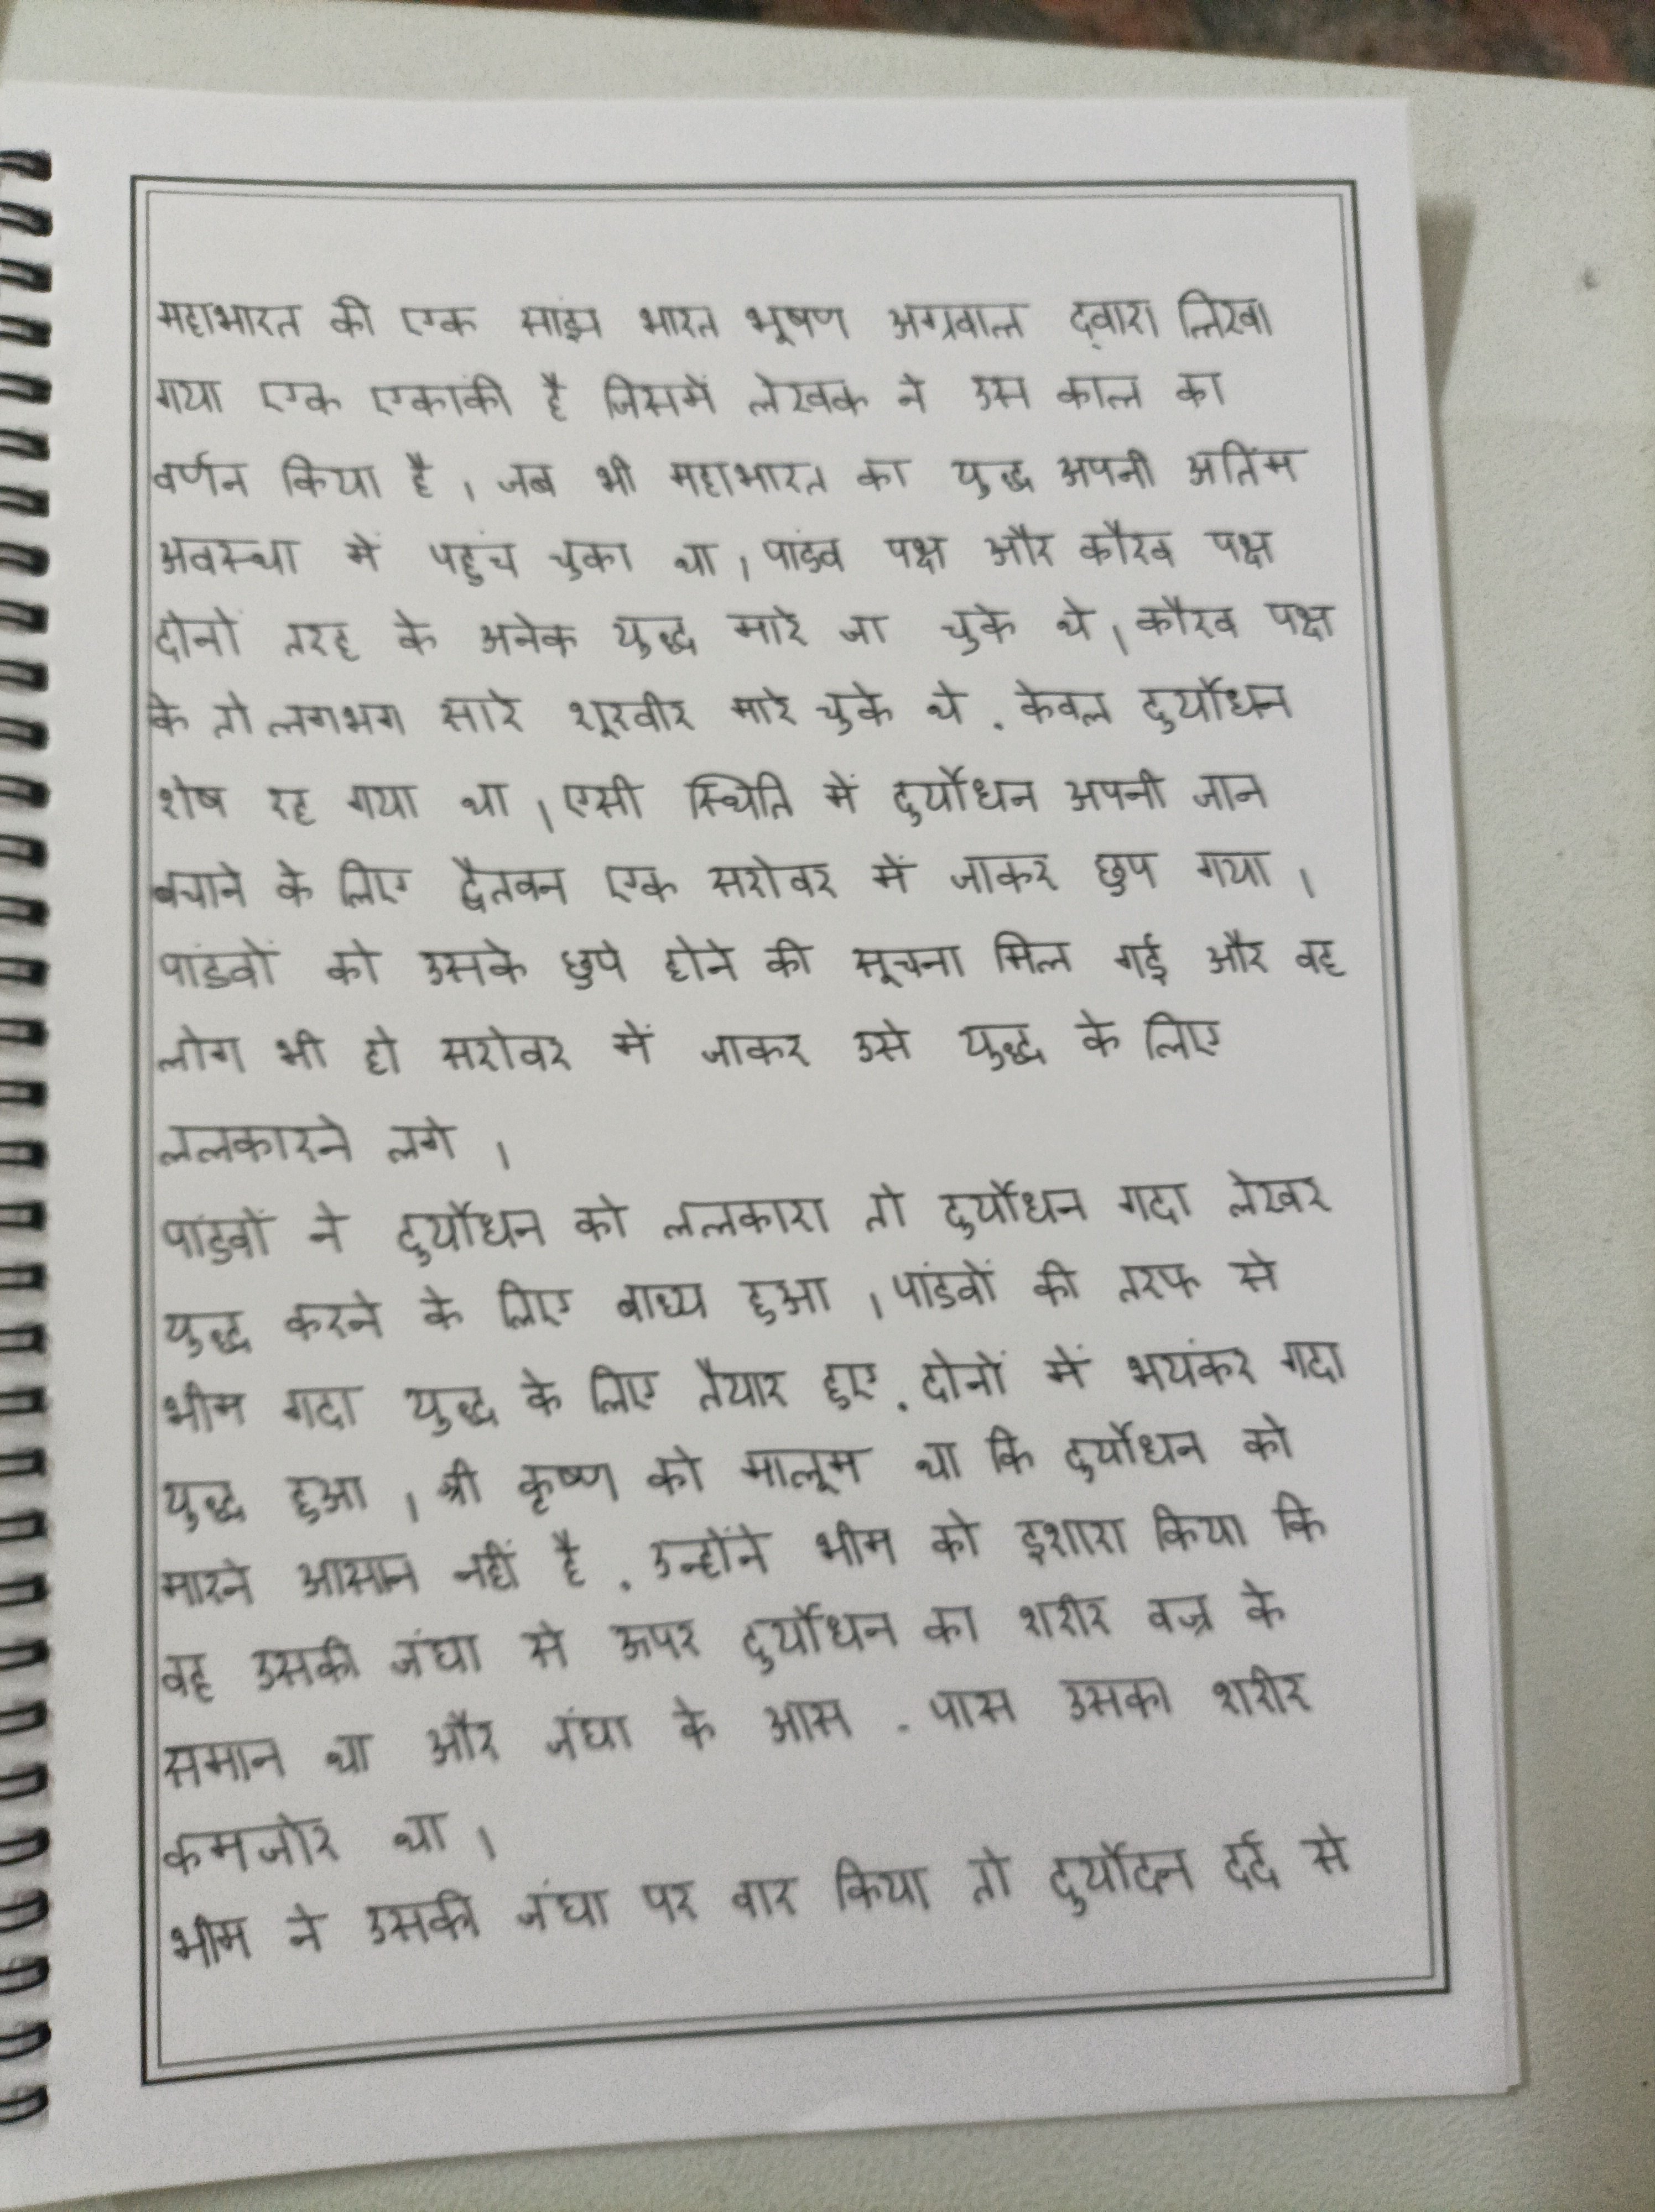 महाभारत की एक सांझ भारत भूषण अग्रवाल द्वारा लिखा
गया एक एकांकी है जिसमें लेखक ने उस काल का
वर्णन किया है । जब भी महाभारत का युद्ध अपनी अतिंम
अवस्था में पहुंच चुका था । पांडव पक्ष और कौरव पक्ष
दोनों तरह के अनेक युद्ध मारे जा चुके थे । कौरव पक्ष
के तो लगभग सारे शूरवीर मारे चुके थे . केवल दुर्योधन
शेष रह गया था । एसी स्थिति में दुर्योधन अपनी जान
बचाने के लिए द्वैतवन एक सरोवर में जाकर छुप गया ।
पांडवों को उसके छुपे होने की सूचना मिल गई और वह
लोग भी हो सरोवर में जाकर उसे युद्ध के लिए
ललकारने लगे ।
पांडवों ने दुर्योधन को ललकारा तो दुर्योधन गदा लेखर
युद्ध करने के लिए बाध्य हुआ । पांडवों की तरफ से
भीम गदा युद्ध के लिए तैयार हुए . दोनों में भयंकर गदा
युद्ध हुआ । श्री कृष्ण को मालूम था कि दुर्योधन को
मारने आसान नहीं है . उन्होंने भीम को इशारा किया कि
वह उसकी जंघा से ऊपर दुर्योधन का शरीर वज्र के
समान था और जंघा के आस . पास उसका शरीर
कमजोर था ।
भीम ने उसकी जंघा पर वार किया तो दुर्योदन दर्द से